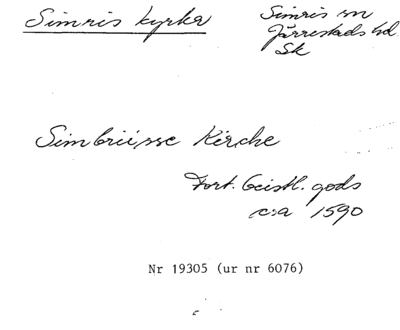 Simris kyrka
Simris sn
Järrestads hd
Sk
Simbrüsse Kirche
Fort. Geistl. gods
c:a 1590
Nr 19305 (ur nr 6076)